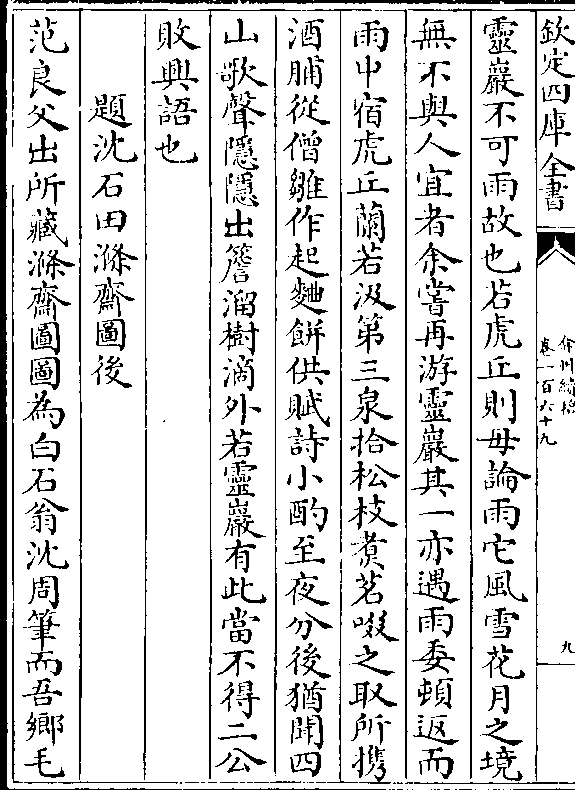 欽定四庫全書
弇州續稿
卷一百六十九
九
靈巖不可雨故也若虎丘則毋論雨它風雪花月之境
無不與人宜者余嘗再游靈巖其一亦遇雨委頓返而
雨中宿虎丘蘭若汲第三泉拾松枝煑茗啜之取所携
酒脯從僧雛作起麫餅供賦詩小酌至夜分後猶聞四
山歌聲隱隱出簷溜樹滴外若靈巖有此當不得二公
敗興語也
題沈石田滌齋圖後
范良父出所藏滌齋圖圖為白石翁沈周筆而吾鄉毛